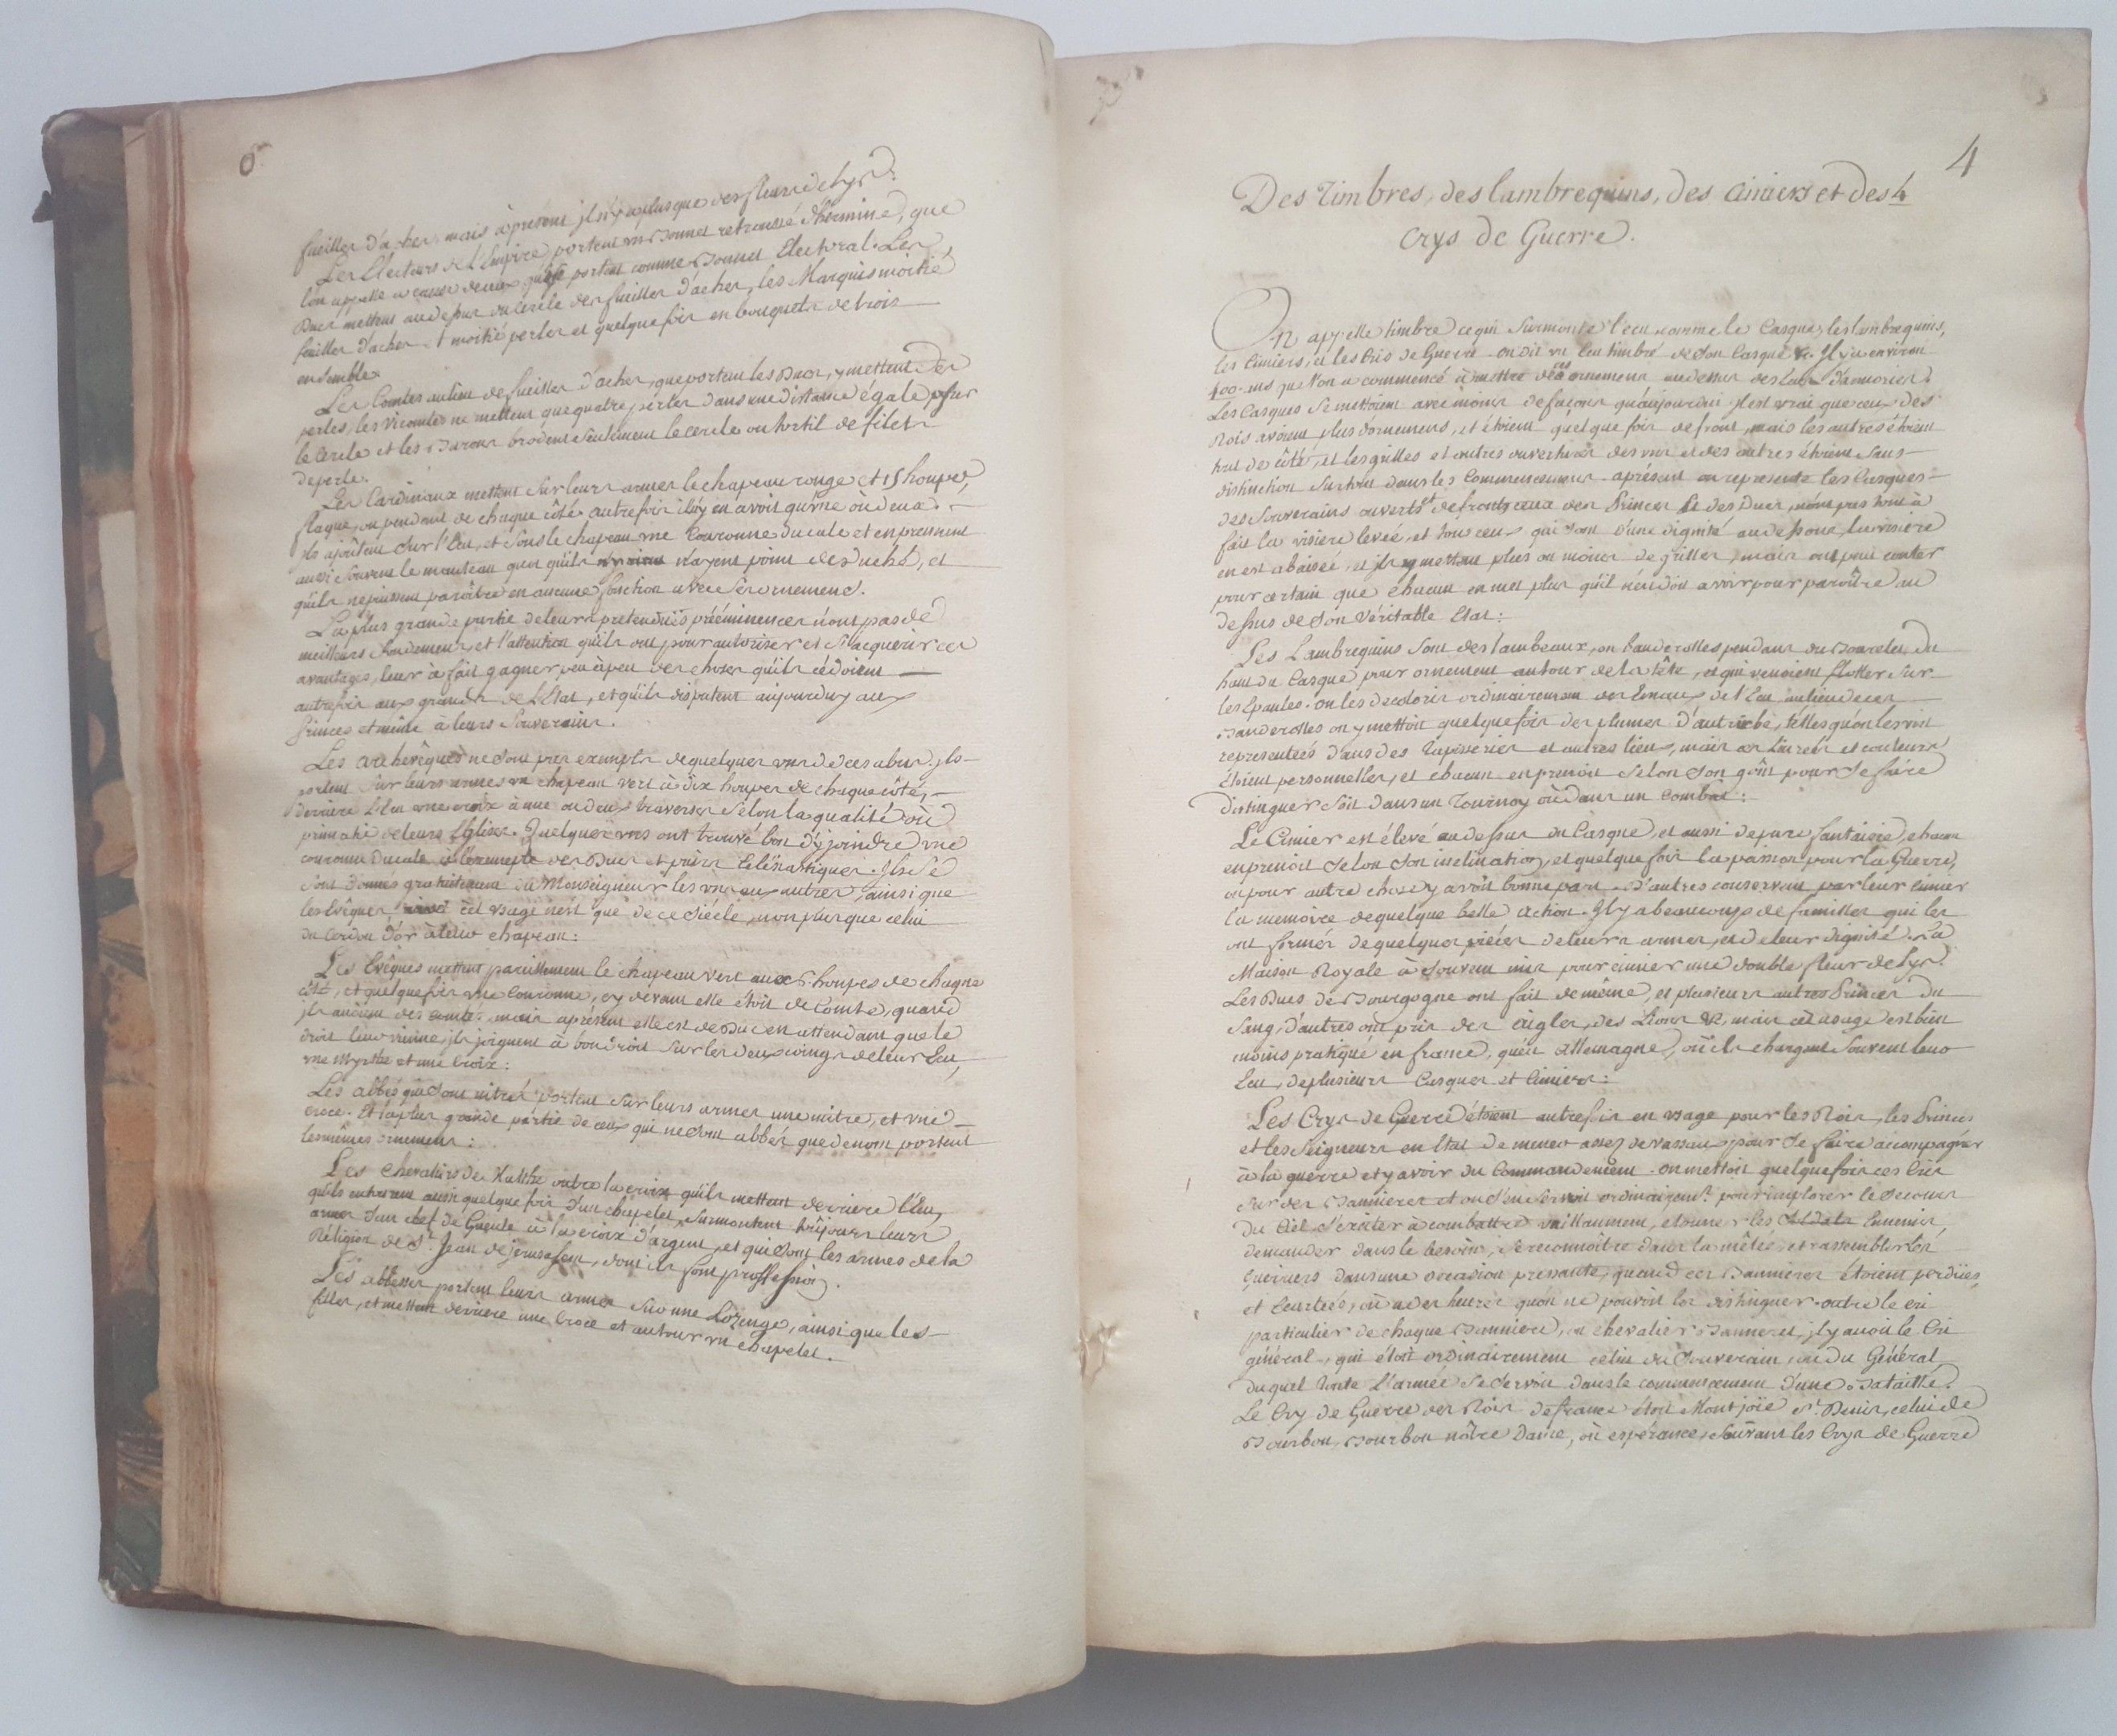 6
fueilles d'acher, mais à present jl n'y a plus que des fleurs de lys.
Les Electeurs de l'Empire, portent un Bonnet retroussé d'hermine, que
l'on appelle a cause de ceux qui le portent comme Bonnet Electoral. Les
Ducs mettent au dessus du Cercle des fueilles d'acher, les Marquis moitié
feuilles d'acher et moitié perles et quelque fois en bouquets de trois
ensemble
Les Comtes au lieu de fueilles d'acher, que portent les Ducs, y mettent des
perles, les Vicomtes ne mettent que quatre perles dans une distance égale sur
le Cercle et les Barons brodent seulement le cercle ou tortil de filets
de perle.
Les Cardinaux mettent sur leurs armes le chapeau rouge et 15 houpes,
flaque, ou pendant de chaque côté autrefois il n'y en avoit qu'une où deux.
ils ajoûtent sur l'Ecu, et sous le chapeau une Couronne ducale et en prennent
aussi souvent le manteau quoi qu'ils n'ayent point de Duché, et
qu'ils ne puissent paroître en aucune fonction avec ses ornemens.
La plus grande partie de leurs pretenduës prééminences n'ont pas de
meilleurs fondemens, et l'attention qu'ils ont pour autoriser et s'acquerir ces
avantages, leur à fait gagner peu à peu des choses qu'ils cédoient
autrefois aux grands de l'Etat, et qu'ils disputent aujourduy aux
Princes et même à leurs Souverains.
Les archevêques ne sont pas exempts de quelques uns de ces abus. jls
portent sur leurs armes un chapeau vert à dix houpes de chaque côté,
derriere l'Ecu une croix à une ou deux traverses selon la qualité où
primatie de leurs Eglises. Quelques uns ont trouvé bon d'y joindre une
couronne Ducale à l'exemple des Ducs et pairs Eclésiastiques. Ils se
sont donnés gratuitement du Monseigneur les uns aux autres, ainsi que
les Evêques cet usage n'est que de ce siécle, non plus que celui
du Cordon d'or à leur chapeau:
Les Evêques mettent pareillement le chapeau vert aux 6 houpes de chaque
côté, et quelquefois une Couronne, cy devant elle étoit de Comte, quand
jls avoient des comtés. mais aprésent elle est de Duc en attendant que le
droit leur vienne, jls joignent à bon droit sur les deux coings de leur Ecu,
une Mytre et une Croix:
Les abbés qui sont mitrés portent sur leurs armes une mitre, et une
croce. Et la plus grande partie de ceux qui ne sont abbés que de nom portent
les mêmes ornemens:
Les Chevaliers de Malthe outre la croix qu'ils mettent derriere l'Ecu,
qu'ils entourent aussi quelque fois d'un chapelet, surmontent toûjours leurs
armes d'un chef de Gueule à la croix d'argent, et qui sont les armes de la
Réligion de St. Jean de jerusalem, dont ils font proffession.
Les abbesses portent leurs armes sur une Lozenge, ainsi que les
filles, et mettent derriere une Croce et autour un chapelet.
4
Des Timbres, des lambrequins, des Cimiers et des 4
Crys de Guerre.
On appelle timbre ce qui surmonte l'ecu comme le Casque, les lambrequins,
les Cimiers, et les Cris de Guerre on dit un Ecu timbré de son Casque &c. Il y a environ
400 ans que l'on a commencé à mettre ces ornemens au dessus des Ecus d'armories.
Les Casques se mettoient avec moins de façons qu'aujourdui. Il est vrai que ceux des
Rois avoient plus d'ornemens, et étoient quelque fois de front, mais les autres étoient
tous de côté, et les grilles et autres ouvertures des uns et des autres étoient sans
distinction surtout dans les Commencemens. aprésent on represente les Casques
des Souverains ouverts et de front, ceux des Princes et des Ducs, n'ont pas tout à
fait la visiere levée, et tous ceux qui sont d'une dignité au dessous, la visiere
en est abaissée, et jls y mettent plus ou moins de grilles, mais on peut conter
pour certain que chacun en met plus qu'il n'en doit avoir pour paroître au
dessus de son véritable Etat:
Les Lambrequins sont des lambeaux, ou banderolles pendans du Bourelet, du
haut du Casque pour ornement autour de la tête, et qui venoient flotter sur
les Epaules. on les décoloroit ordinairement des Emaux de l'Ecu, au lieu de ces
Banderolles on y mettoit quelque fois des plumes d'autruche, telles qu'on les voit
representées dans des Tapisseries et autres lieux, mais ces Livrées et couleurs
étoient personnelles, et chacun en prenoit selon son goût pour se faire
distinguer soit dans un Tournoy où dans un Combat:
Le Cimier est élevé au dessus du Casque, et aussi de pure fantaisie, chacun
en prenoit selon son inclination, et quelque fois la passion pour la Guerre,
ou pour autre chose y avoit bonne part. D'autres conservent par leur cimier
la memoire de quelque belle action. Il y a beaucoup de familles qui les
ont formés de quelques piéces de leurs armes, et de leur dignité. La
Maison Royale à souvent mis pour cimier une double fleur de Lys.
Les Ducs de Bourgogne ont fait de même, et plusieurs autres Princes du
sang, d'autres ont pris des aigles, des Lions &c, mais cet usage est bien
moins pratiqué en france, qu'en Allemagne, où ils chargent souvent leur
Ecu, de plusieurs Casques et Cimiers:
Les Crys de Guerre étoient autrefois en usage pour les Rois, les Princes
et les Seigneurs en Etat de mener assez de vassaux pour se faire accompagner
à la guerre et y avoir du Commandement. on mettoit quelquefois ces Cris
sur des Bannieres et on s'en servoit ordinairemt. pour implorer le secours
du Ciel, s'exciter à combattre vaillamment, etonner les soldats Ennemis,
demander dans le besoin, se reconnoître dans la mêlée, et rassembler les
Guerriers dans une occasion pressante, quand ces Bannieres étoient perduës,
et Ecartées, où a des heures qu'on ne pouvoit les distinguer. outre le cri
particulier de chaque Banniere, et chevalier Banneret, jl y avoit le Cri
général, qui étoit ordinairement celui du Souverain, ou du Général,
duquel toute l'armée se servoit dans le commencement d'une Bataille.
Le Cry de Guerre des Rois de france étoit Montjoie St. Denis, celui de
Bourbon, Bourbon nôtre Dame, où espérance, suivant les Crys de Guerre